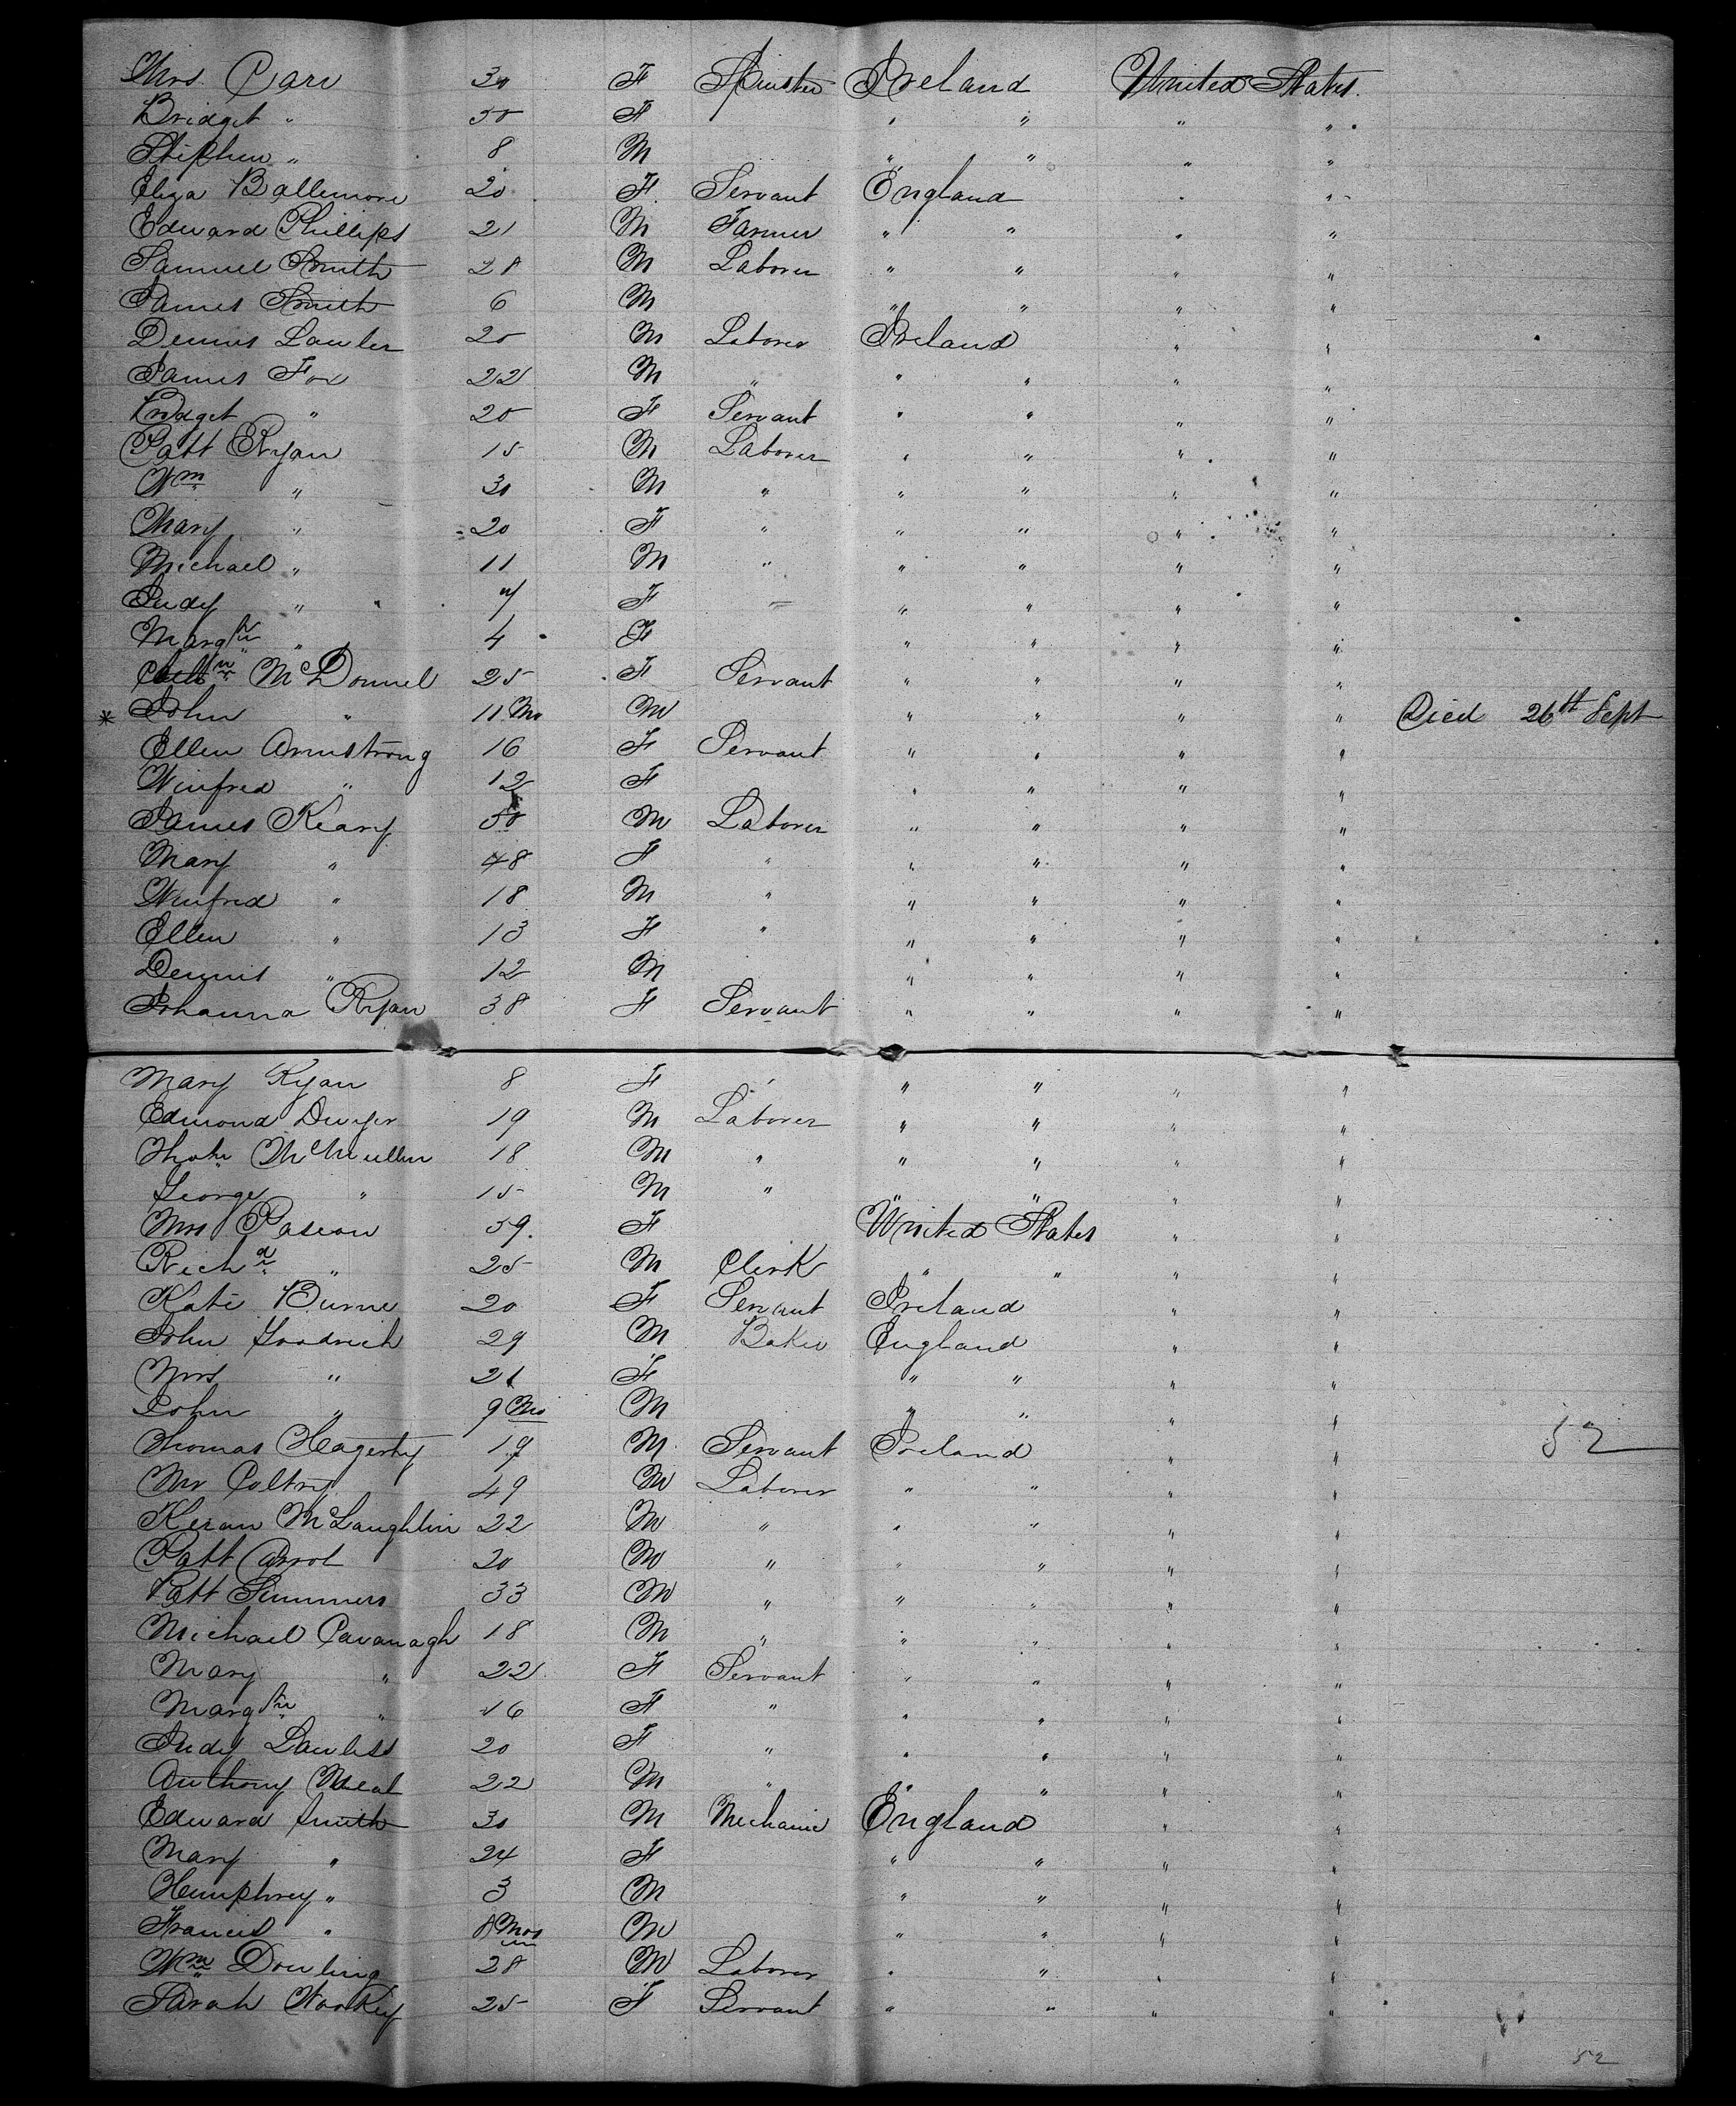 Mrs. Carr 30 F Spinster Ireland United States.
Bridget " 50 F " " " "
Stephen " 8 M " " " "
Eliza Ballemore 20 F. Servant England " "
Edward Phillips 21 M Farmer " " " "
Samuel Smith 28 M Laborer " " " "
James Smith 6 M " " " "
Dennis Lawler 20 M Laborer Ireland " "
James Fox 22 M " " " " "
Bridget " 20 F Servant " " " "
Patt Ryan 15 M Laborer " " " "
Wm " 30 M " " " " "
Mary " 20 F " " " " "
Michael " 11 M " " " " "
Judy " 7 F " " " "
Margtt " 4 F " " " "
Cathn McDonnel 25 F Servant " " " "
* John " 11 Mo M " " " " Died 26th Sept
Ellen Armstrong 16 F Servant " " " "
Winfred " 12 F " " " "
James Keary 50 M Laborer " " " "
Mary " 48 F " " " " "
Winfred " 18 M " " " " "
Ellen " 13 F " " " " "
Dennis " 12 M " " " "
Johanna Ryan 38 F Servant " " " "
Mary Ryan 8 F " " " " "
Edmond Dwyer 19 M Laborer " " " "
McMullen 18 M " " " " "
George " 15 M " " " " "
Mrs 59. F United States " "
Richd " 25 M Clerk " " " "
Kate Burne 20 F Servant Ireland " "
John Goodrich 29 M Baker England " "
Mrs " 21 F " " " "
John " 9 Mo M " " " "
Thomas Hagerty 19 M Servant Ireland " " 52
Mr Coltry 49 M Laborer " " " "
Keran McLaughlin 22 M " " " " "
Patt Carrol 20 M " " " " "
Patt Summers 33 M " " " " "
Michael Cavanagh 18 M " " " " "
Mary " 22 F Servant " " " "
Margtt " 16 F " " " " "
Judy Lawless 20 F " " " " "
Anthony Neal 22 M " " " " "
Edward Smith 30 M Mechanic England " "
Mary " 24 F " " " "
Humphrey " 3 M " " " "
Francis " 8 Mos M " " " "
Wm Dowling 28 M Laborer " " " "
Sarah 25 F Servant " " " "
52